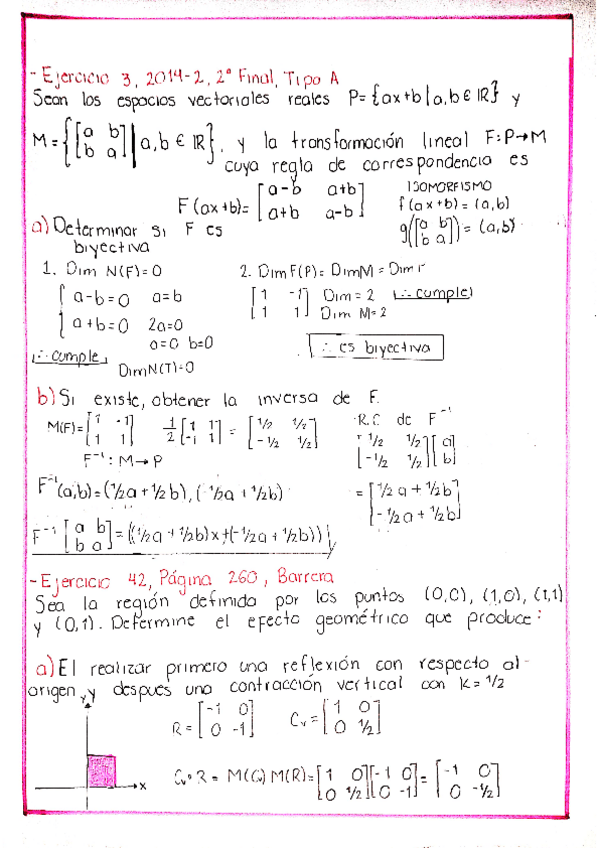 - Ejercicio 3, 2014-2, 2° Final, Tipo A
Sean los espacios vectoriales reales P={ax+b|a,b∈IR} y
M={[a b; b a]|a,b∈IR}, y la transformación lineal F:P→M
cuya regla de correspondencia es
F(ax+b)=[a-b a+b; a+b a-b]
ISOMORFISMO
f(ax+b)=(a,b)
g([a b; b a])=(a,b)
a) Determinar si F es
biyectiva
1. Dim N(F)=0
a-b=0 a=b
a+b=0 2a=0
a=0 b=0
∴ cumple
Dim N(T)=0
2. Dim F(P)= Dim M = Dim
[1 -1; 1 1] Dim=2 ∴ cumple
Dim M=2
∴ es biyectiva
b) Si existe, obtener la inversa de F.
M(F)=[1 -1; 1 1] 1/2[1 1; -1 1] = [1/2 1/2; -1/2 1/2]
F⁻¹: M→P
R.C de F⁻¹
[1/2 1/2; -1/2 1/2][a; b]
= [1/2a+1/2b; -1/2a+1/2b]
F⁻¹(a,b)=(1/2a+1/2b),(-1/2a+1/2b)
F⁻¹[a b; b a]=((1/2a+1/2b)x+(-1/2a+1/2b))
- Ejercicio 42, Página 260, Barrera
Sea la región definida por los puntos (0,0), (1,0), (1,1)
y (0,1). Determine el efecto geométrico que produce:
a) El realizar primero una reflexión con respecto al
origen y después una contracción vertical con K=1/2
y
x
R=[-1 0; 0 -1] Cv=[1 0; 0 1/2]
Cv∘R = M(C) M(R)=[1 0; 0 1/2][-1 0; 0 -1]=[-1 0; 0 -1/2]